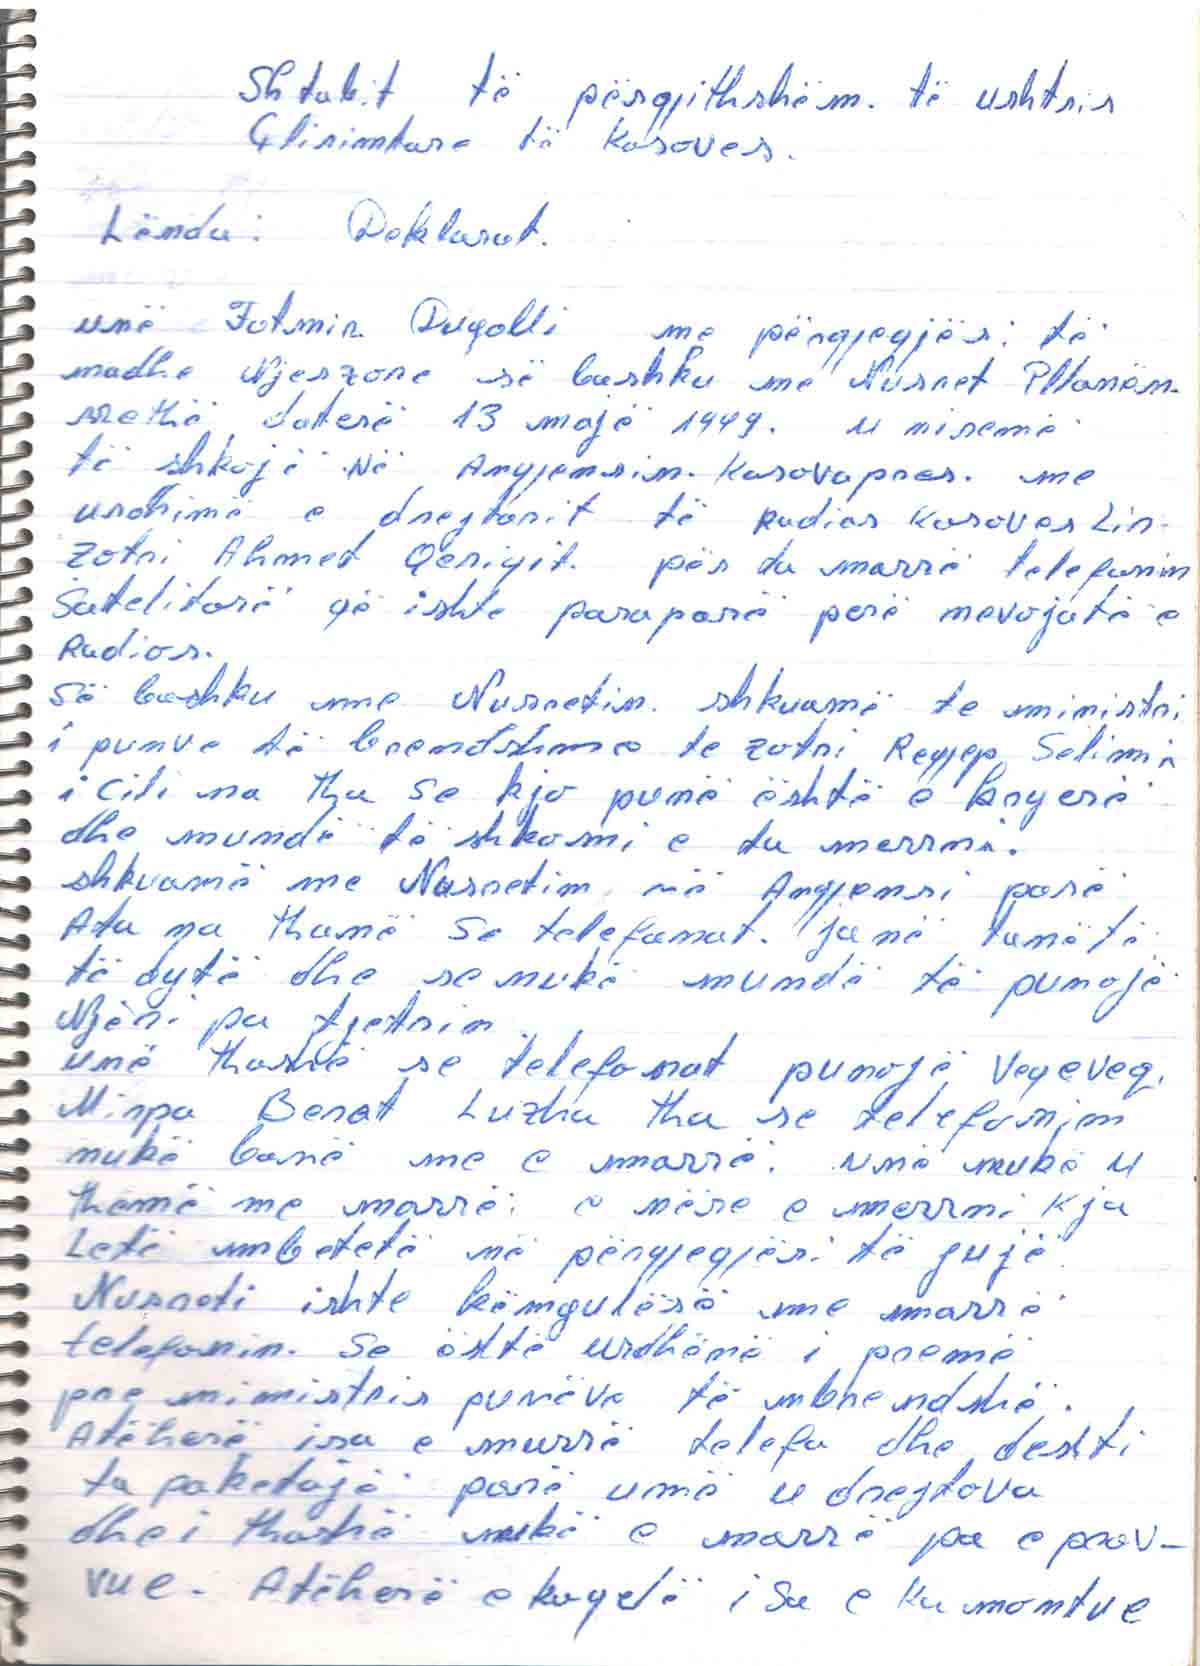 Shtabit të përgjithshëm. të ushtris
Çlirimtare të Kosoves.
Lënda: Deklarat.
unë Fatmir Dugolli me përgjegjësi të
madhe Njerzore së bashku me Nusret Pllanën.
rrethë daterë 13 majë 1999. u nisemë
të shkojë në Angjensin. Kosovapres. me
urdhimë e drejtorit të Radios Kosoves Lir-
Zotri Ahmet Qeriqit. për ta marrë telefonin
Satelitorë që ishte paraparë parë nevojatë e
Radios.
Së bashku me Nusretin. shkuamë te ministri
i punve të brendshme te zotri Regjep Selimin
i cili na tha se kjo punë është e kryerë
dhe mundë të shkomi e ta merrni.
shkuamë me Nusretin në Angjensi parë
Ata na thanë se telefonat. janë tanë të
të dytë dhe se nukë mundë të punojë
Njëri pa tjetrin
unë thashë se telefonat punojë veqeveq.
Mirpa Berat Luzha tha se telefonjen
nukë banë me e marrë. unë nukë u
themë me marrë: e nëse e merrni Kja
Letë mbetetë në përgjegjësi të jujë.
Nusreti ishte këmgulësë me marrë
telefonin. Se është urdhënë i premë
pre ministris punëve të mbrendshë.
Atëherë isa e murrë telefa dhe deshti
ta paketojë parë unë u drejtova
dhe i thashë nukë e marrë pa e prov-
vue. Atëherë e kuqelë isa e ka montue